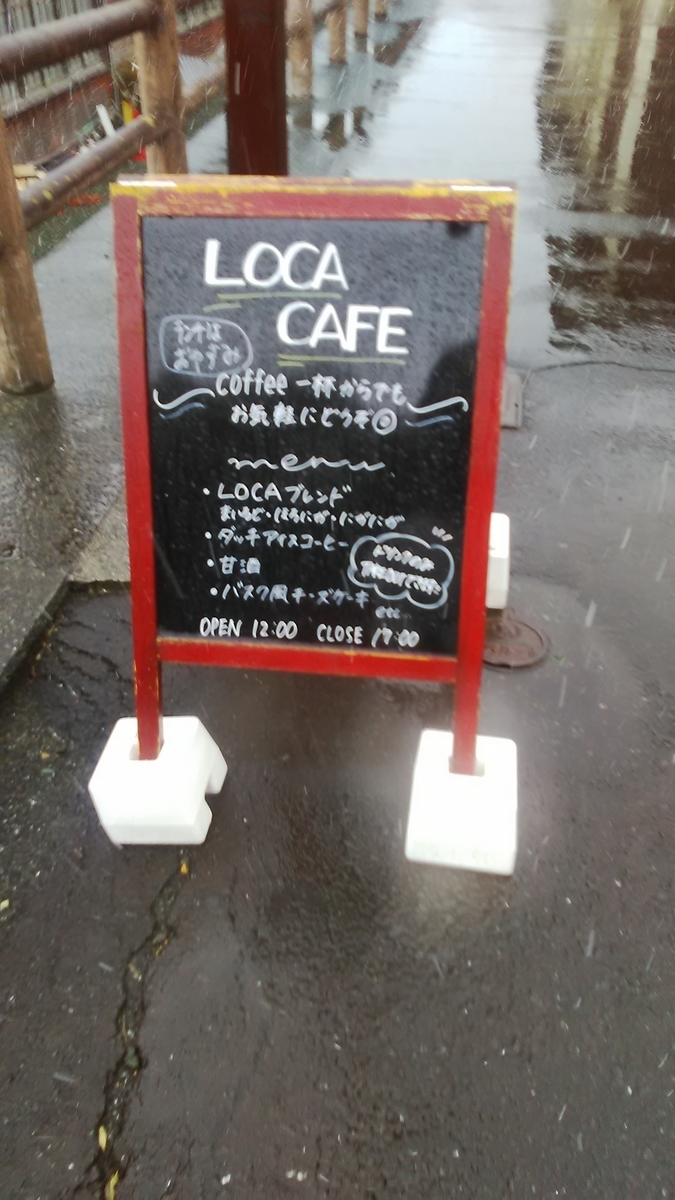 LOCA
CAFE
ランチは
おやすみ
coffee 一杯からでも
お気軽にどうぞ◎
menu
・LOCAブレンド
まいるど・ほろにが・にがにが
・ダッチアイスコーヒー
・甘酒
・バスク風チーズケーキ
etc
OPEN 12:00 CLOSE 17:00